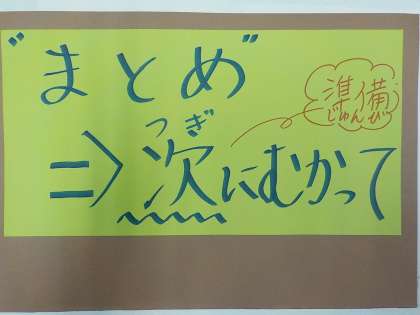 "まとめ"
準備
じゅんび
つぎ
⇒次にむかって